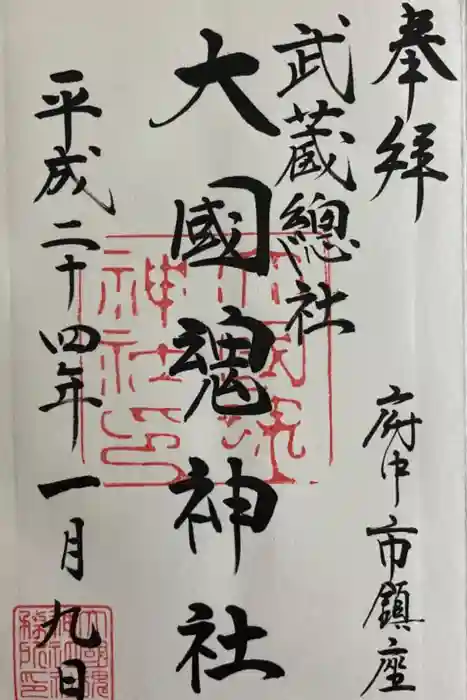 奉拝
府中市鎮座
武蔵總社
大國魂神社
平成二十四年一月九日